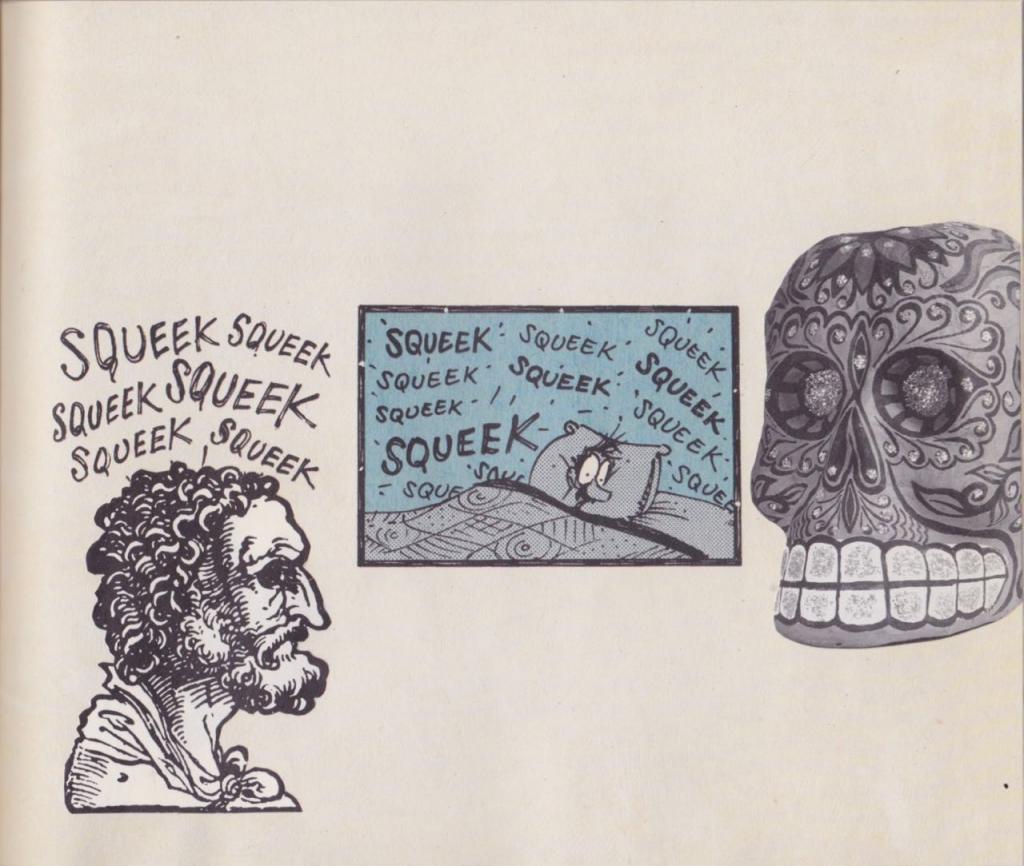 SQUEEK SQUEEK
SQUEEK SQUEEK
SQUEEK SQUEEK
SQUEEK SQUEEK SQUEEK
SQUEEK SQUEEK SQUEEK
SQUEEK SQUEEK
SQUEEK
SQUE SQU SQUE